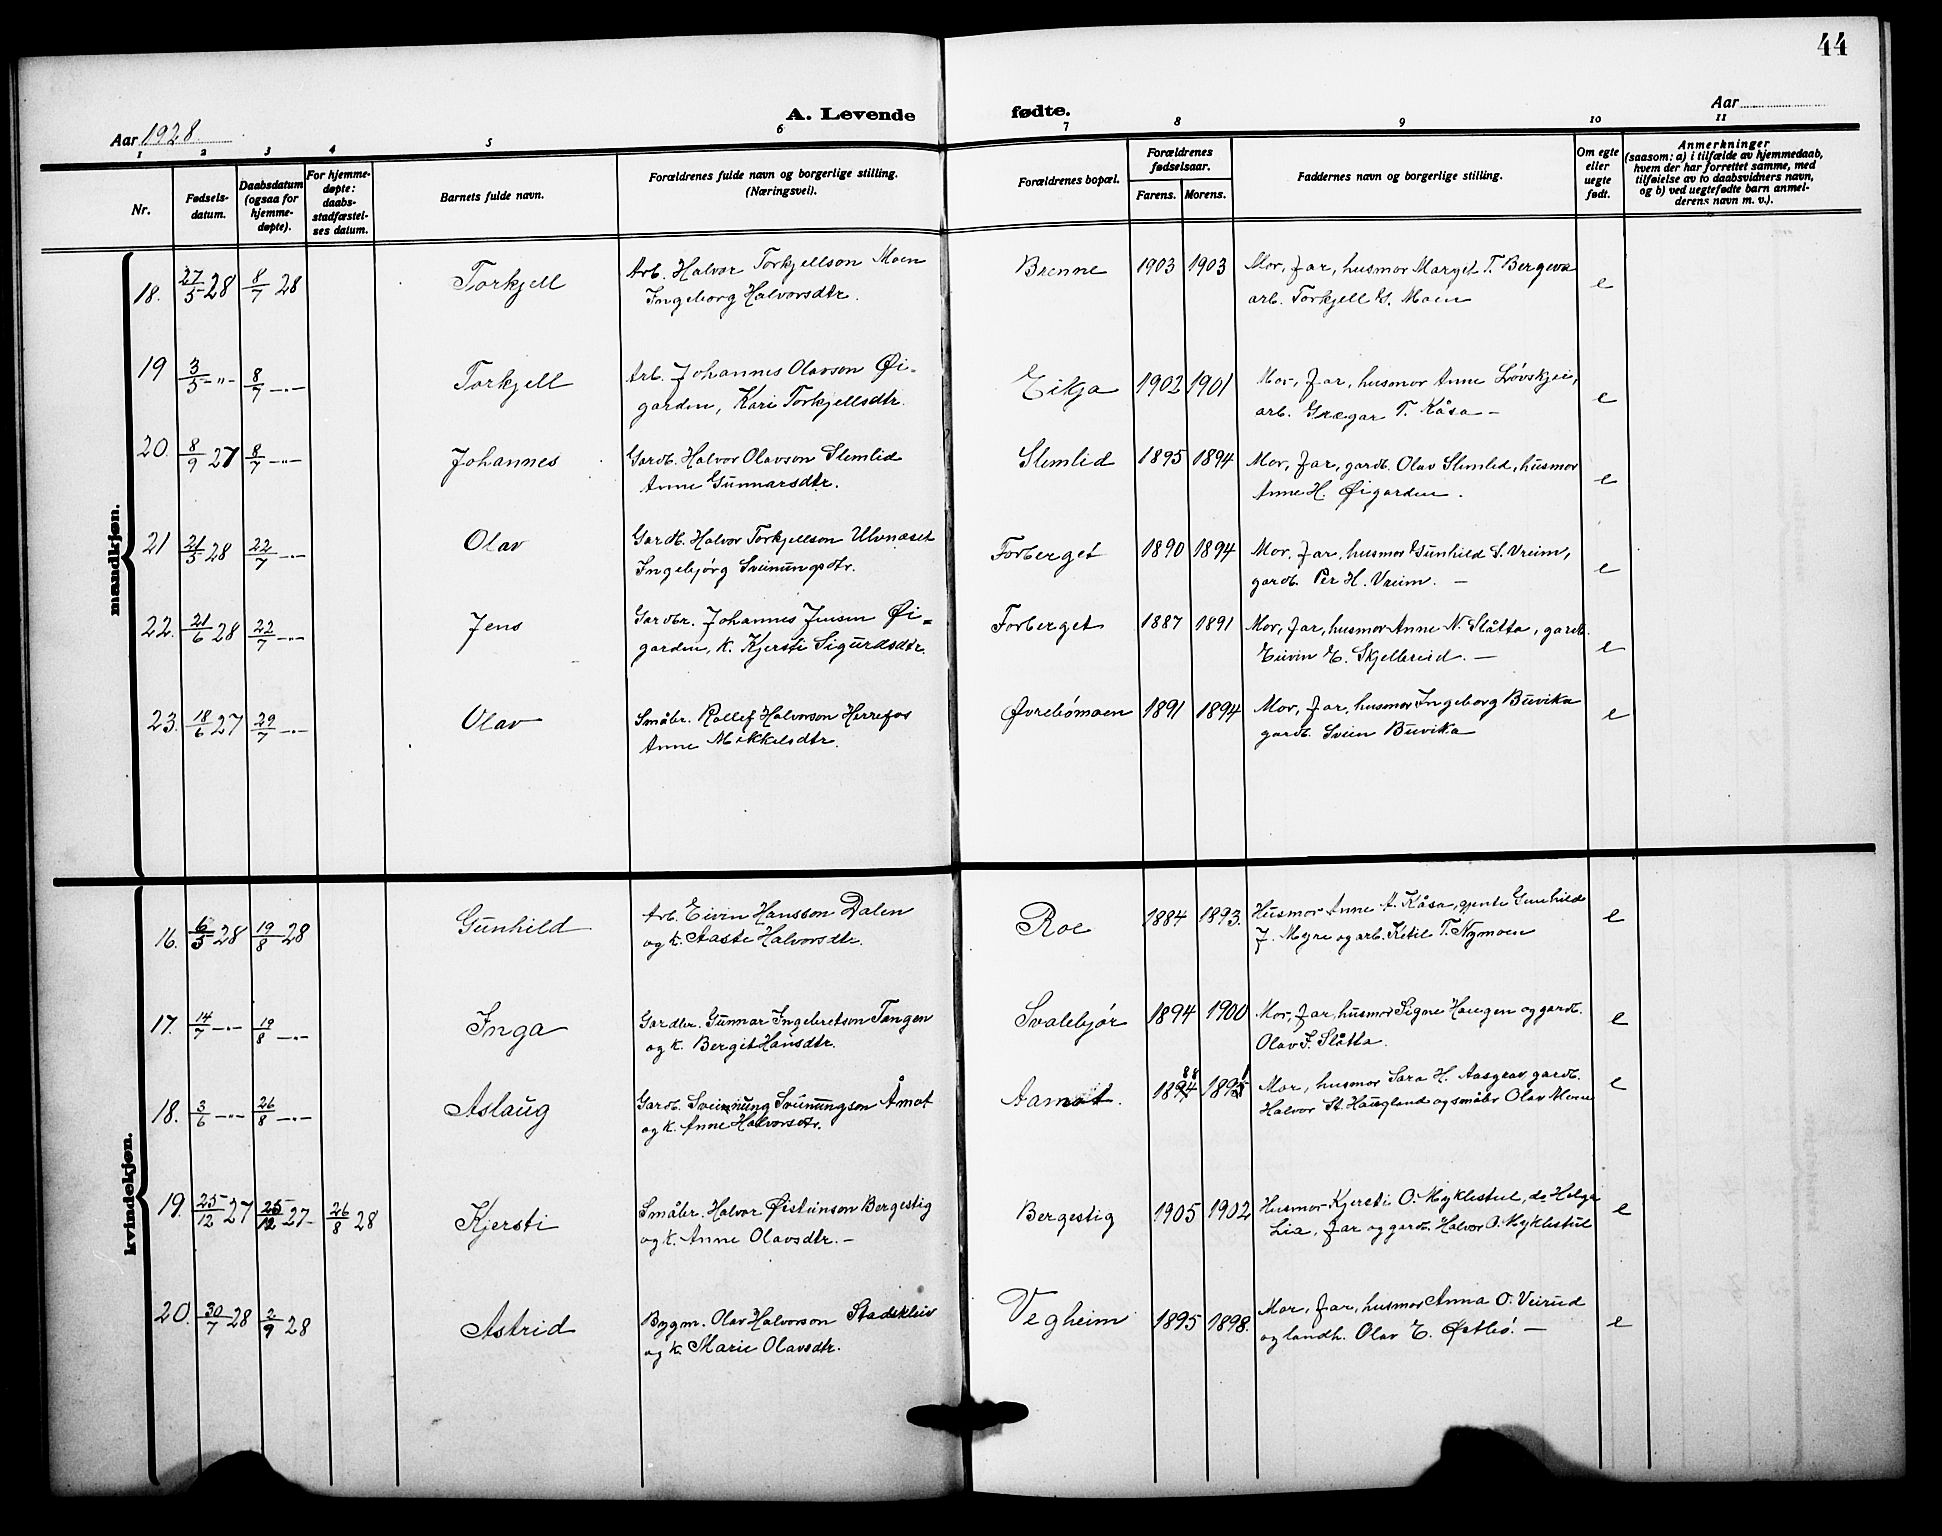 44
Aar 1928
A. Levende
fødte.
Aar
1 2 3 4 5 6 7 8 9 10 11
Nr.
Fødsels-
datum.
Daabsdatum
(ogsaa for
hjemme-
døpte).
For hjemme-
døpte:
daabs-
stadfæstel-
ses datum.
Barnets fulde navn.
Forældrenes fulde navn og borgerlige stilling.
(Næringsvei).
Forældrenes bopæl.
Forældrenes
fødselsaar.
Farens. Morens.
Faddernes navn og borgerlige stilling.
Om egte
eller
uegte
født.
Anmerkninger
(saasom: a) i tilfælde av hjemmedaab,
hvem der har forrettet samme, med
tilføielse av to daabsvidners navn,
og b) ved uegtefødte barn anmel-
derens navn m. v.).
mandkjøn.
18. 27/5 28 8/7 28 Torkjell Arb. Halvor Torkjellson Moen Brenne 1903 1903 Mor, far, husmor Margit T. Bergeva e
Ingeborg Halvorsdtr. arb. Torkjell G. Moen
19 3/5 -"- 8/7 -"- Torkjell Arb. Johannes Olavson Øi- Eikja 1902 1901 Mor, far, husmor Anne Løvskjei, e
garden, Kari Torkjellsdtr. arb. Grægar T. Kåsa -
20. 8/9 27 8/7 -"- Johannes Gardb. Halvor Olavson Slemlid Slemlid 1895 1894 Mor, far, gardb. Olav Slemlid, husmor e
Anne Gunnarsdtr. Anne H. Øigarden.
21 21/5 28 22/7 -"- Olav Gardb. Halvor Torkjellson Ulvnæset Forberget 1890 1894 Mor, far, husmor Gunhild S. Vreim, e
Ingebjørg Sveinungsdtr. gardb. Per H. Vreim. -
22. 21/6 28 22/7 -"- Jens Gardbr. Johannes Jensen Øi- Forberget 1887 1891 Mor, far, husmor Anne N. Slåtta, gardb. e
garden, k. Kjersti Sigurdsdtr. Eivin E. Skjelbreid. -
23. 18/6 27 29/7 -"- Olav Småbr. Rollef Halvorson Herrefos Øvrebømoen 1891 1894 Mor, far, husmor Ingeborg Buvika e
Anne Mikkelsdtr. gardb. Svein Buvika
kvindekjøn.
16. 6/5 28 19/8 28 Gunhild Arb. Eivin Hansson Dalen Roe 1884 1893. Husmor Anne A. Kåsa, gjente Gunhild e
og k. Aaste Halvorsdtr. J. Myre og arb. Ketil T. Nymoen
17. 14/7 -"- 19/8 -"- Inga Gardbr. Gunnar Ingebretson Tangen Svalebjør 1894 1900 Mor, far, husmor Signe Haugen og gardb. e
og k. Bergit Hansdtr. Olav J. Slåtta.
18. 3/6 -"- 26/8 -"- Aslaug Gardb. Sveinung Sveinungson Åmot Aamot. Mor, husmor Sara H. Aasgrav, gardb. e
og k. Anne Halvorsdtr. Halvor St. Haugland og småbr Olav Moen
19. 25/12 27 25/12 27- 26/8 28 Kjersti Småbr. Halvor Øisteinson Bergestig Bergestig 1905 1902 Husmor Kjersti O. Myklestul, do Helga e
og k. Anne Olavsdtr. - Lia, far og gardb. Halvor O. Myklestul
20. 30/7 28 2/9 28 Astrid Bygm. Olav Halvorson Stadskleiv Vegheim 1895 1898. Mor, far, husmor Anna O. Veirud e
og k. Marie Olavsdtr. og landh. Olav E. Østbø. -